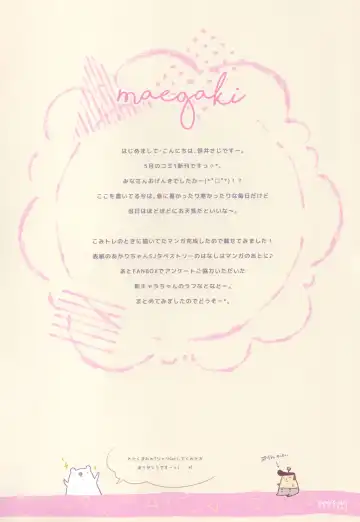 maegaki
はじめまして・こんにちは、笹井さじですー。
5月のコミ1新刊ですっ✧*。
みなさんおげんきでしたかー(*°□°*)！？
ここを書いてる今は、急に暑かったり寒かったりな毎日だけど
当日はほどほどにお天気だといいな～。
こみトレのときに描いてたマンガ完成したので載せてみました！
表紙のあかりちゃんSJタペストリーのはなしはマンガのあとに♪
あとFANBOXでアンケートご協力いただいた
新キャラちゃんのラフなどなどー。
まとめてみましたのでどうぞー*。